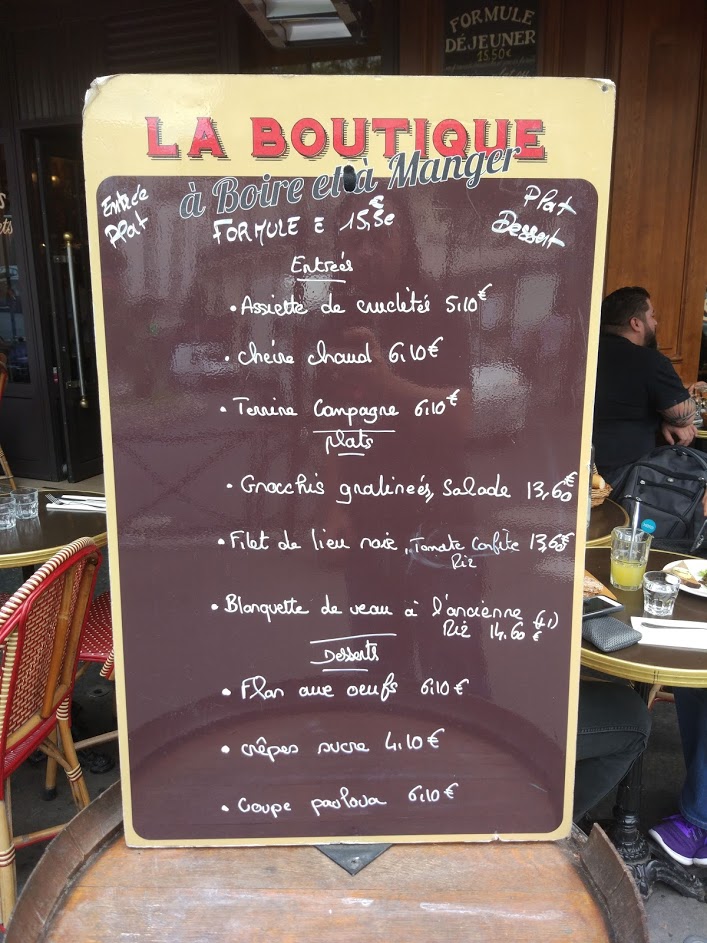 FORMULE
DÉJEUNER
15,50€
LA BOUTIQUE
à Boire et à Manger
Entrée
Plat
FORMULE E 15,5€
Plat
Dessert
Entrées
• Assiette de crudités 5,10€
• chèvre chaud 6,10€
• Terrine Campagne 6,10€
plats
• Gnocchis gratineés, Salade 13,60€
• Filet de lieu noir, Tomate Confite 13,60€
Riz
• Blanquette de veau à l'ancienne (+1)
Riz 14,60 €
Desserts
• Flan aux oeufs 6,10€
• crêpes sucre 4,10€
• Coupe pavlova 6,10€